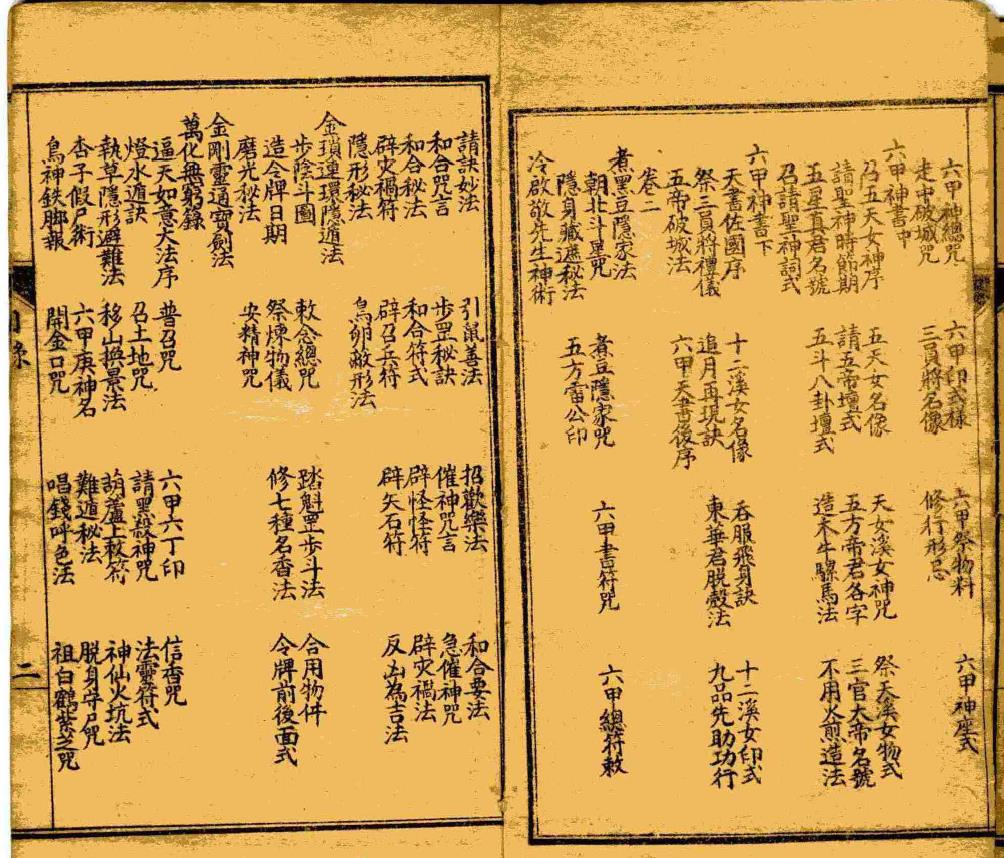 六甲神總咒 六甲印式樣 六甲祭物料 六甲神座式
走中破城咒 三員將名像 修行形忌
六甲神書中
召五天女神序 五天女名像 天女溪女神咒 祭天溪女物式
請聖神時節期 請五帝壇式 五方帝君各字 三官大帝名號
五星真君名號 五斗八卦壇式 造木牛騾馬法 不用火煎造法
召請聖神詞式
六甲神書下
天書佐國序 十二溪女名像 吞服飛身訣 十二溪女印式
祭三員將禮儀 追月再現訣 東華君脫殼法 九品先助功行
五帝破城法 六甲天書後序
卷二
煮黑豆隱家法 煮豆隱家咒 六甲書符咒 六甲總符敕
朝北斗罡咒 五方雷公印
隱身藏遮秘法
冷啟敬先生神術
請訣妙法 引鼠善法 招歡樂法 和合要法
和合咒言 步罡秘訣 催神咒言 急催神咒
和合秘法 和合符式 辟怪怪符 辟灾禍法
辟灾禍符 辟召兵符 辟矢石符 反凶為吉法
隱形秘法 鳥卵敝形法
金瑣連環隱遁法
步陰斗圖 敕念總咒 踏魁罡步斗法 合用物件
造令牌日期 祭煉物儀 修七種名香法 令牌前後面式
磨光秘法 安精神咒
金剛靈通寶劍法
萬化無窮錄
逼天如意大法序 普召咒 六甲六丁印 信香咒
燈水遁訣 召土地咒 請黑殺神咒 法靈符式
執草隱形避難法 移山換景法 葫蘆上敕符 神仙火坑法
杏子假尸術 六甲庚神名 難遁秘法 脫身守尸咒
鳥神鉄脚報 開金口咒 唱錢呼色法 祖白鶴紫芝咒
目錄
二